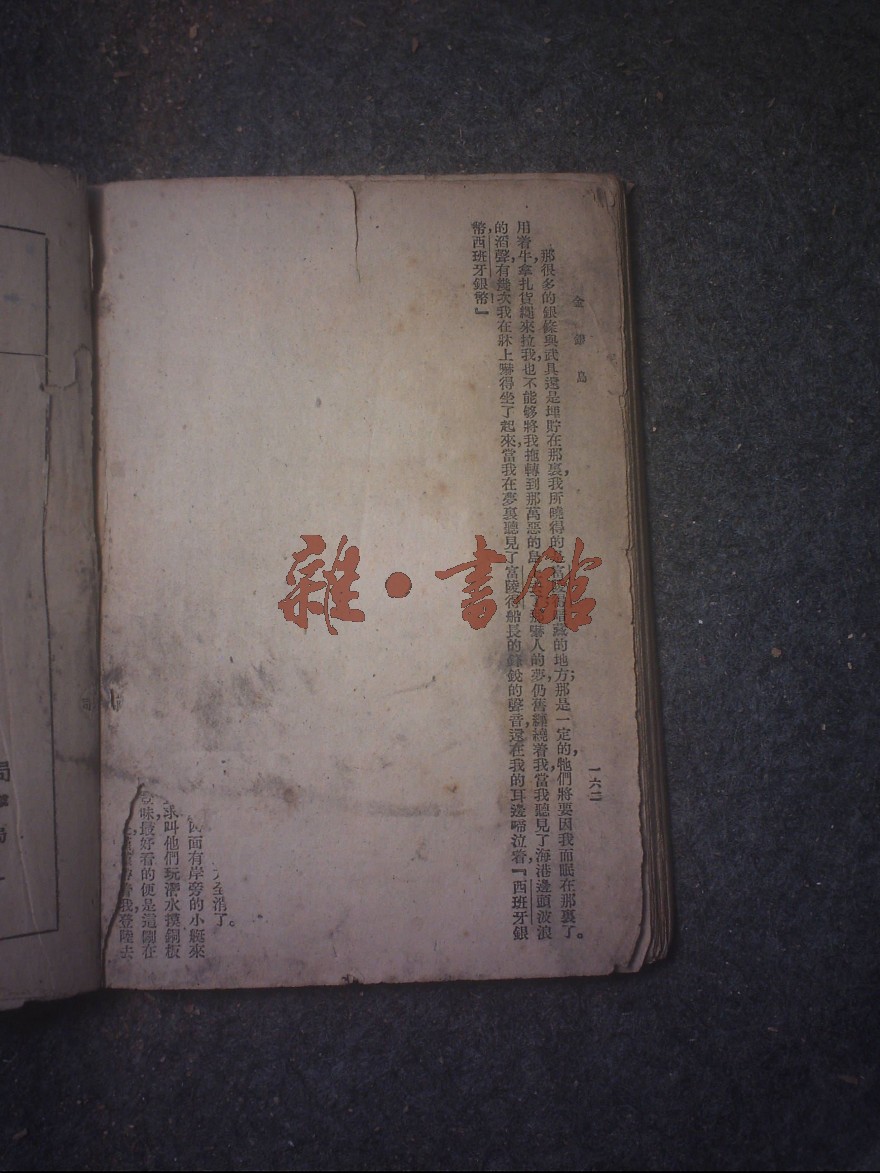 金銀島
一六二
那很多的銀條與武具還是埋貯在那裏,我所曉得的,富陵得埋藏的地方;那是一定的,牠們將要因我而眠在那裏了。
用着牛拿扎貨繩來拉我,也不能够將我拖轉到那萬惡的島 嚇人的夢,仍舊纏繞着我,當我聽見了海港邊頭波浪
的滔聲,有幾次我在牀上嚇得坐了起來,當我在夢裏聽見了富陵得船長的 銳的聲音,還在我的耳邊啼泣着,『西班牙銀
幣,西班牙銀幣!』
全消了。
面有岸旁的小艇來
求叫他們玩潛水摸銅板
味,最好看的便是這個在
着我,登陸去
局
雜·書館